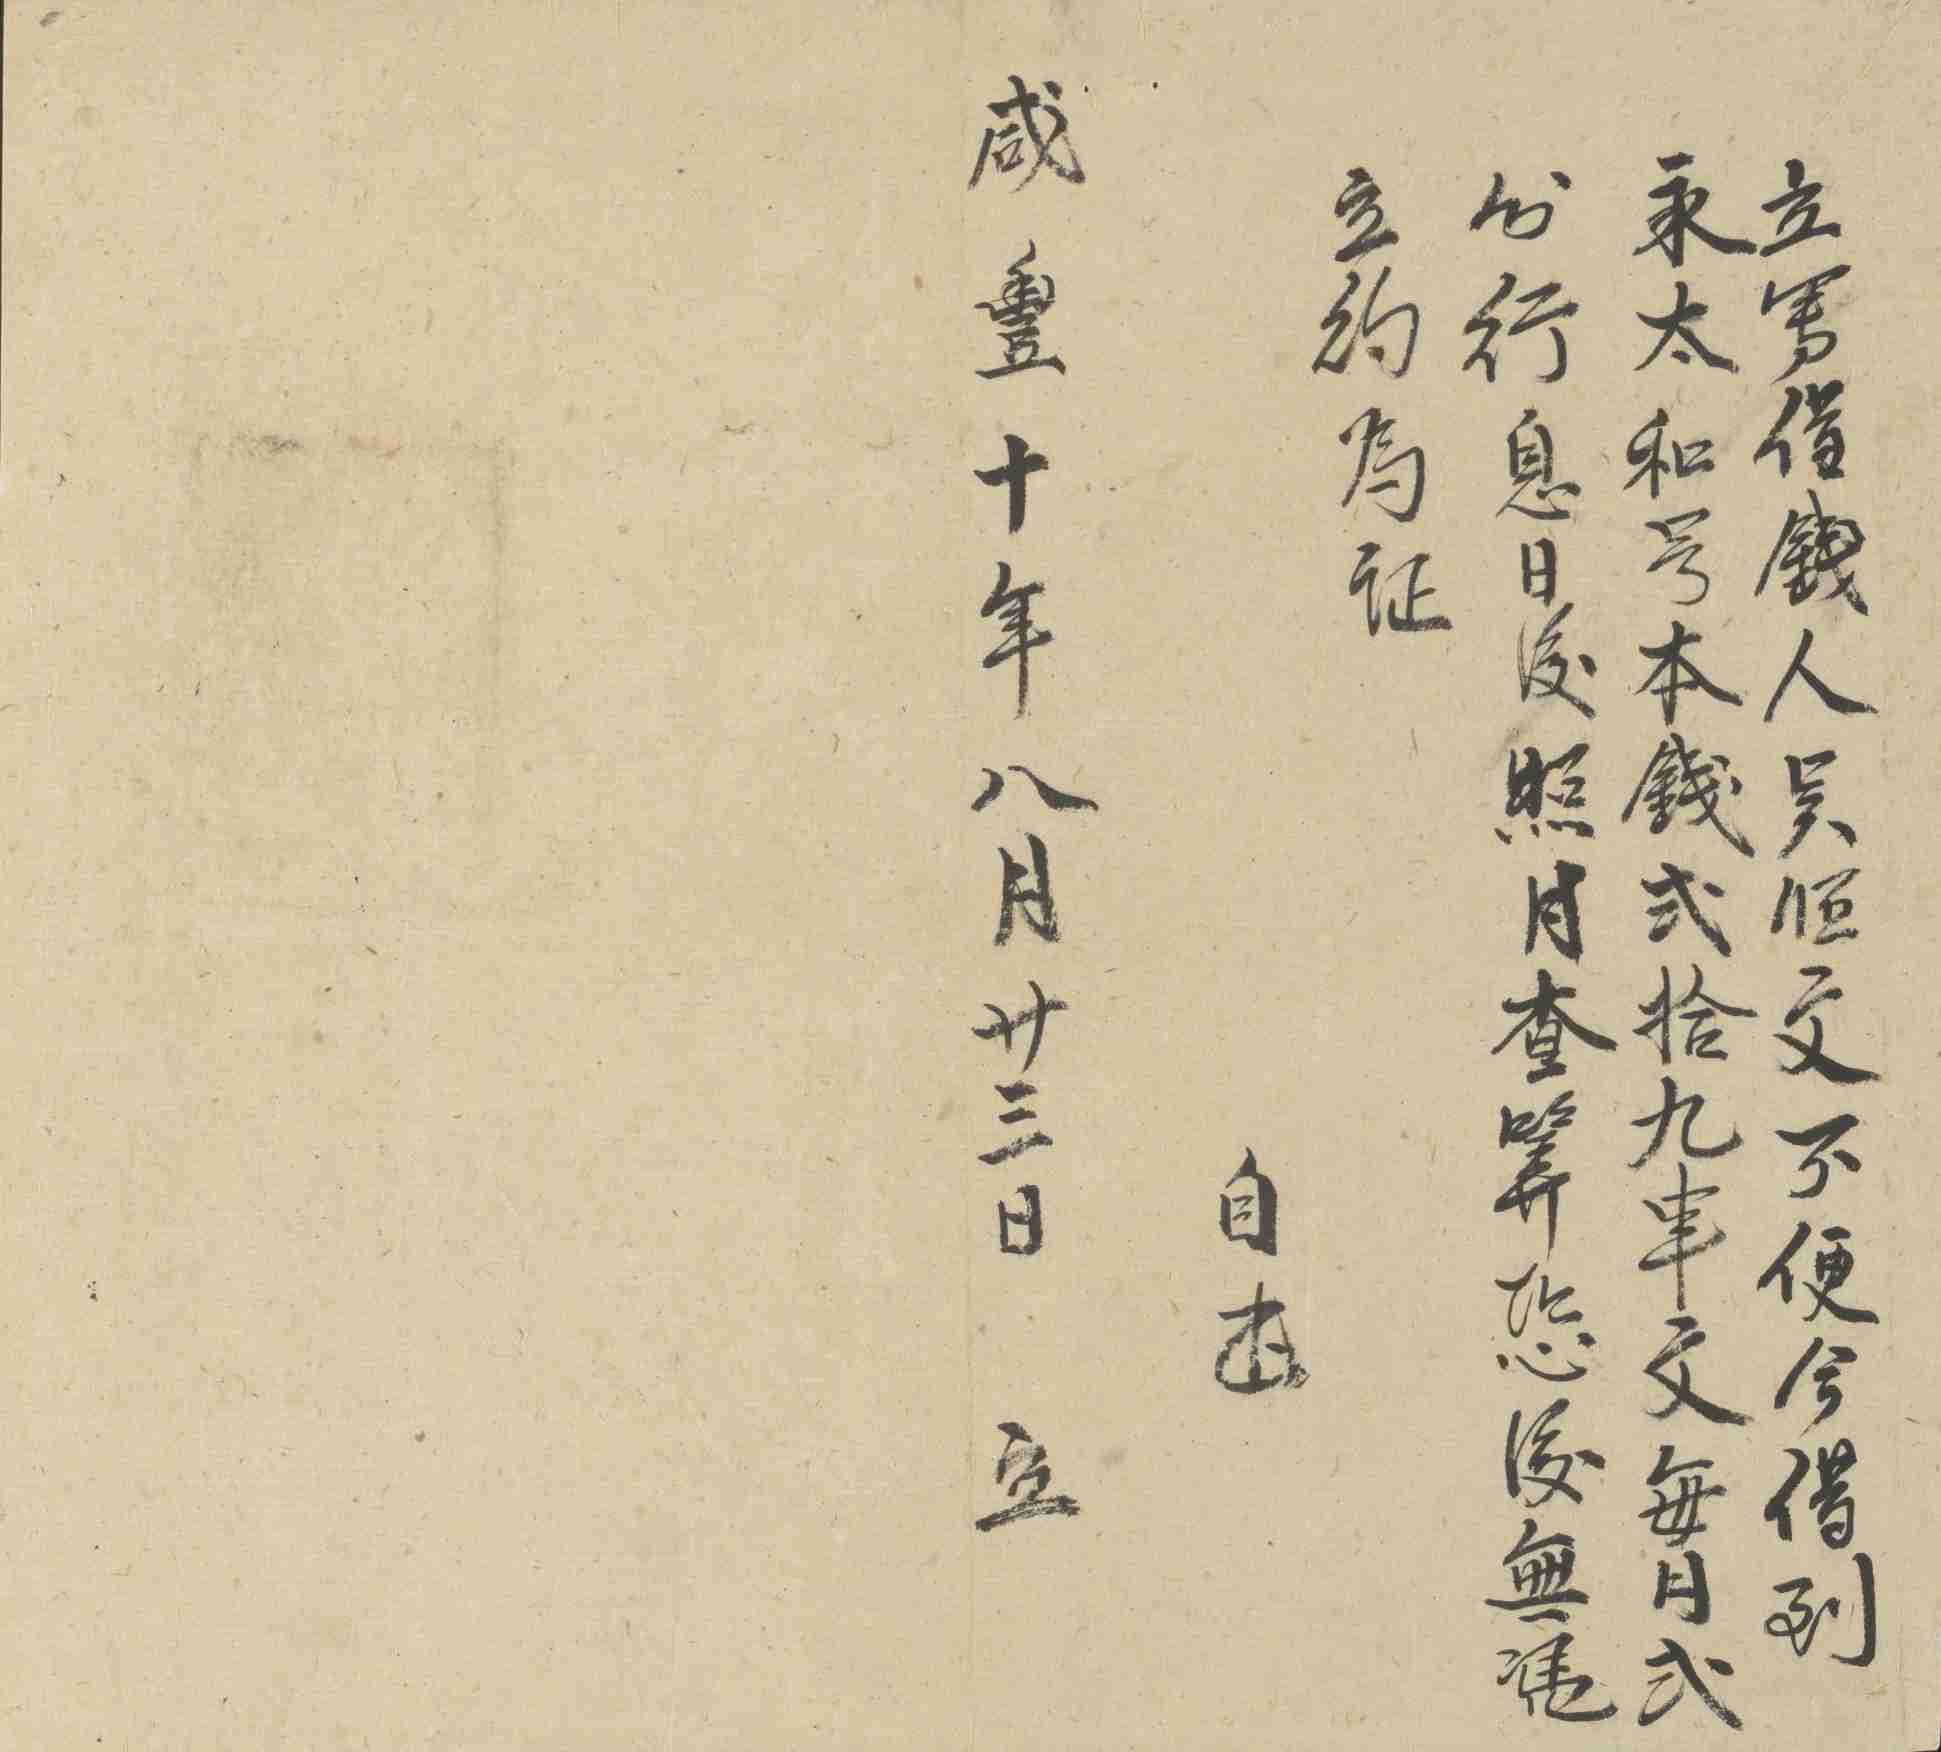 立寫借錢人吴恒文不便今借到
永太和号本錢弍拾九串文每月弍
分行息日後照月查算恐後無憑
立約為証
自書
咸豐十年八月廿三日 立